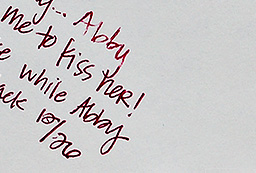 y... Abby
me to kiss her!
e while Abby
ack 10/26